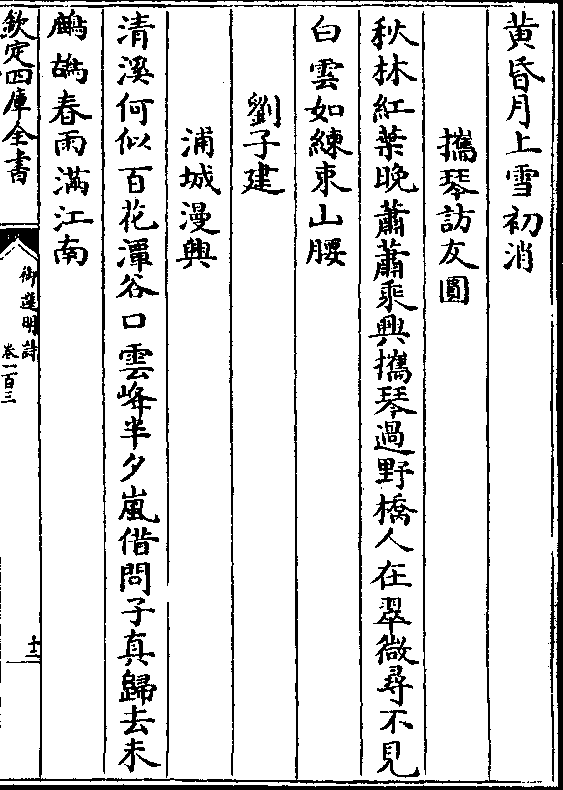 黄昏月上雪初消
攜琴訪友圖
秋林紅葉晚蕭蕭乘興攜琴過野橋人在翠微尋不見
白雲如練束山腰
劉子建
浦城漫興
清溪何似百花潭谷口雲峰半夕嵐借問子真歸去未
鷓鴣春雨滿江南
欽定四庫全書
御選明詩
卷一百三
十二